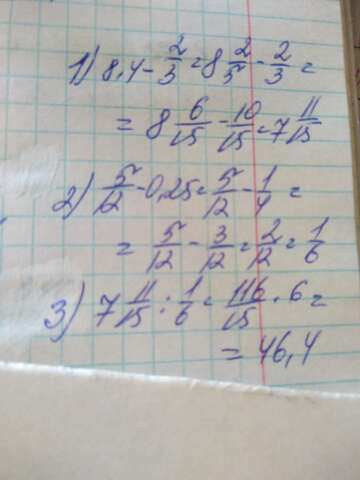 1) 8,4 - 2/3 = 8 2/5 - 2/3 =
= 8 6/15 - 10/15 = 7 11/15
2) 5/12 - 0,25 = 5/12 - 1/4 =
= 5/12 - 3/12 = 2/12 = 1/6
3) 7 11/15 : 1/6 = 116/15 · 6 =
= 46,4